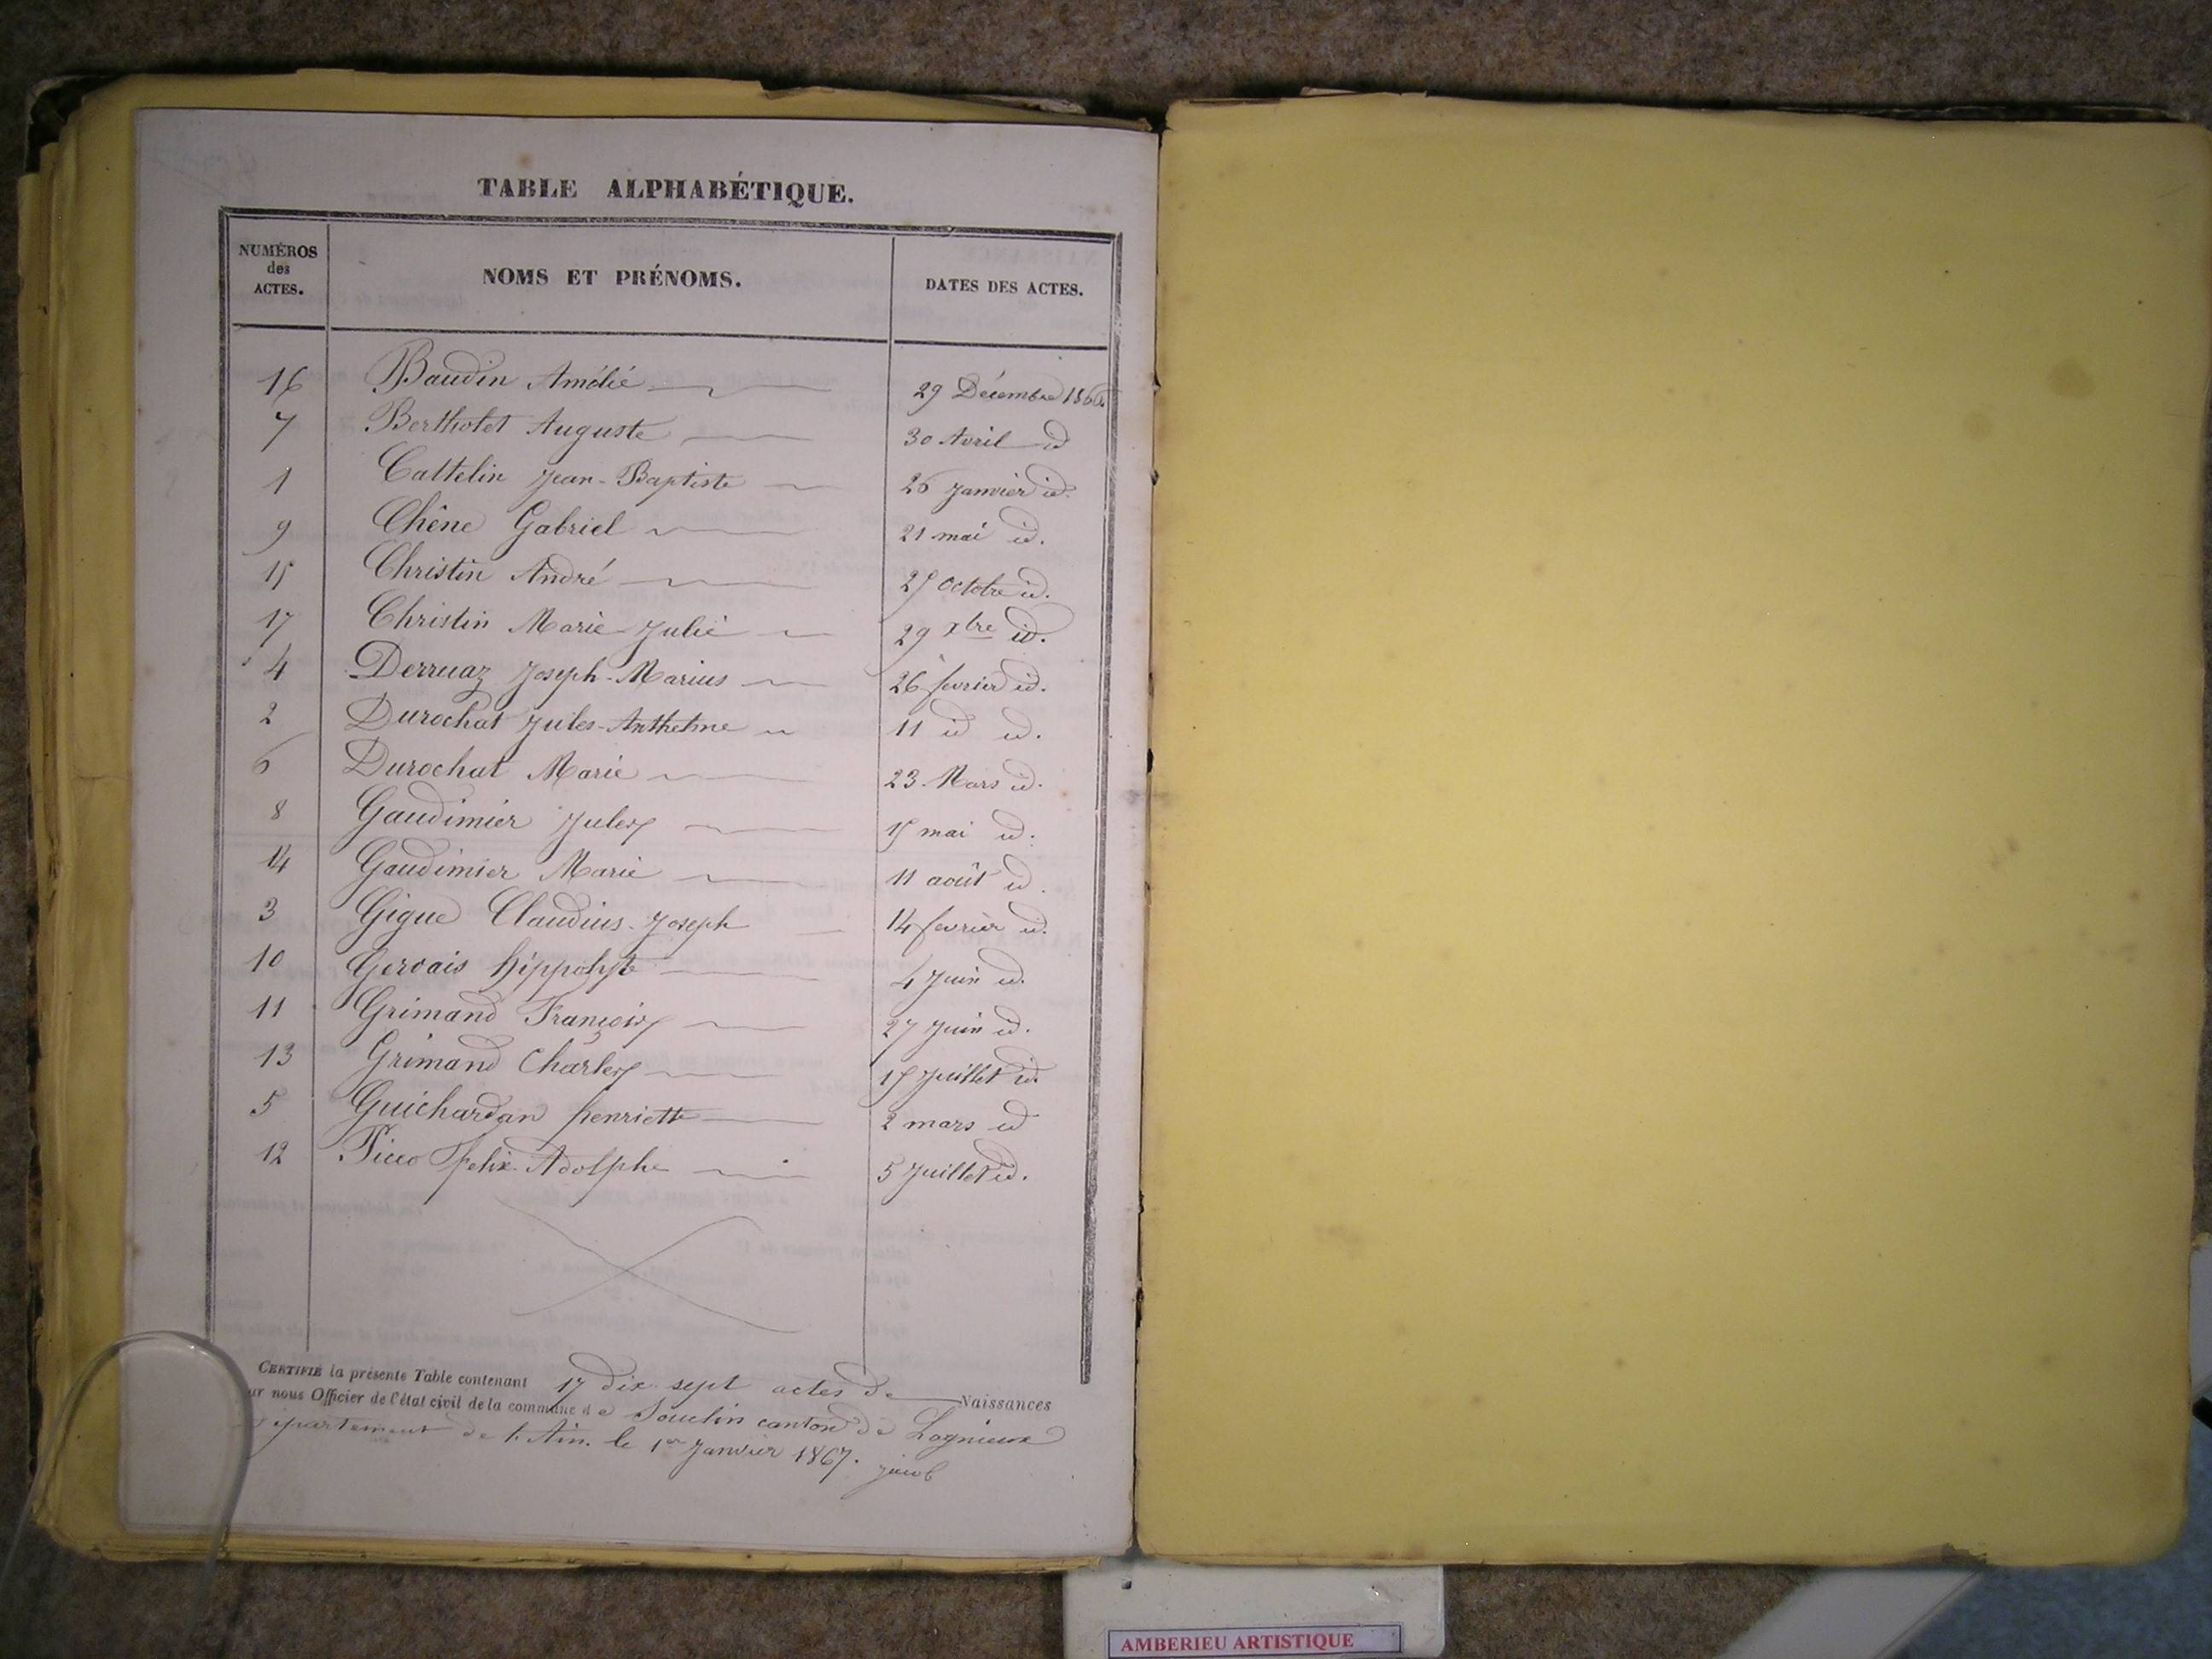 TABLE ALPHABÉTIQUE.
NUMÉROS des ACTES. NOMS ET PRÉNOMS. DATES DES ACTES.
16 Baudin Amélie 29 Décembre 1866
7 Bertholet Auguste 30 Avril id
1 Cattelin Jean-Baptiste 26 Janvier id.
9 Chêne Gabriel 21 mai id.
15 Christin André 25 octobre id.
17 Christin Marie Julie 29 xbre id.
4 Derruaz Joseph-Marius 26 fevrier id.
2 Durochat Jules-Anthelme 11 id id.
6 Durochat Marie 23 Mars id.
8 Gaudimier Jules 15 mai id.
14 Gaudimier Marie 11 août id.
3 Gigue Claudius-Joseph 14 fevrier id.
10 Gervais hippolyte 4 Juin id.
11 Grimand François 27 Juin id.
13 Grimand Charles 15 Juillet id.
5 Guichardan henriette 2 mars id
12 Picco Felix-Adolphe 5 Juillet id.
CERTIFIÉ la présente Table contenant 17 dix-sept actes de Naissances
ur nous Officier de l'état civil de la commune de Souclin canton de Lagnieux
département de l'Ain. le 1er Janvier 1867. Jacob
AMBERIEU ARTISTIQUE